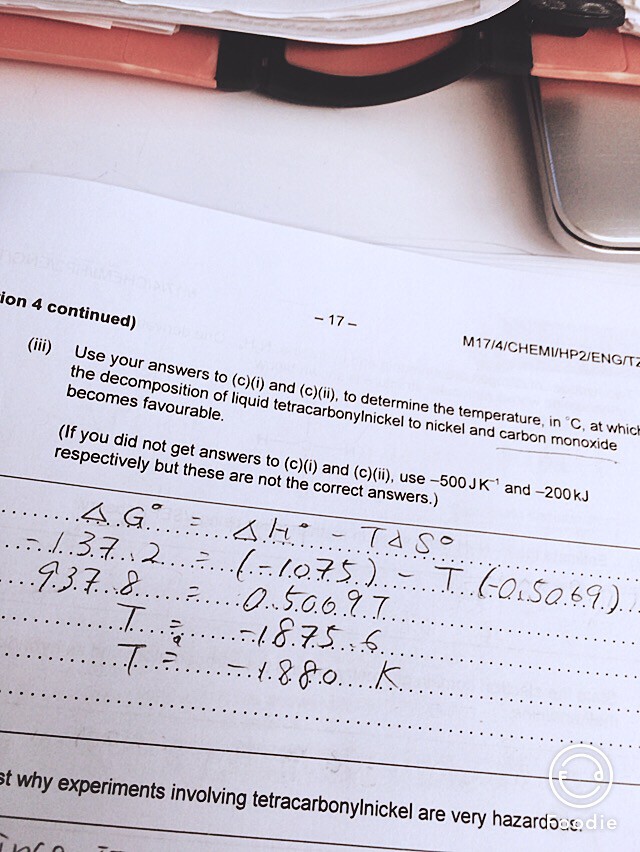 – 17 –
M17/4/CHEMI/HP2/ENG/TZ
ion 4 continued)
(iii) Use your answers to (c)(i) and (c)(ii), to determine the temperature, in °C, at which
the decomposition of liquid tetracarbonylnickel to nickel and carbon monoxide
becomes favourable.
(If you did not get answers to (c)(i) and (c)(ii), use −500 J K⁻¹ and −200 kJ
respectively but these are not the correct answers.)
ΔG° = ΔH° − TΔS°
−137.2 = (−1075) − T(−0.5069)
937.8 = 0.5069T
T = −1875.6
T = −1880 K
st why experiments involving tetracarbonylnickel are very hazardous.
Foodie